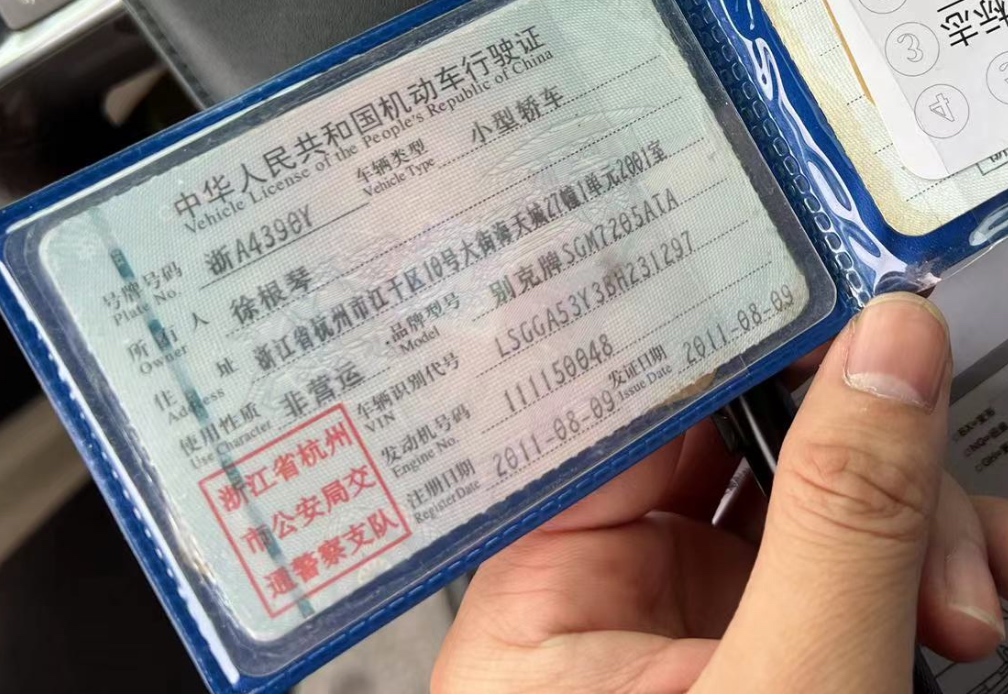 中华人民共和国机动车行驶证
Vehicle License of the People's Republic of China
号牌号码 浙A4390Y 车辆类型 小型轿车
Plate No. Vehicle Type
所有人 徐根琴
Owner
住址 浙江省杭州市江干区10号大街海天城27幢1单元2001室
Address
使用性质 非营运 品牌型号 别克牌SGM7205ATA
Use Character Model
车辆识别代号 LSGGA53Y3BH231297
VIN
发动机号码 111150048
Engine No.
注册日期 2011-08-09 发证日期 2011-08-09
Register Date Issue Date
浙江省杭州
市公安局交
通警察支队
标志
3
4